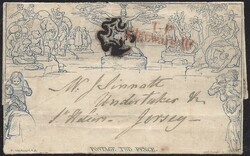 L.S
Mr J. Sinnatt
Undertaker &c
St Heliers.
Jersey
POSTAGE TWO PENCE